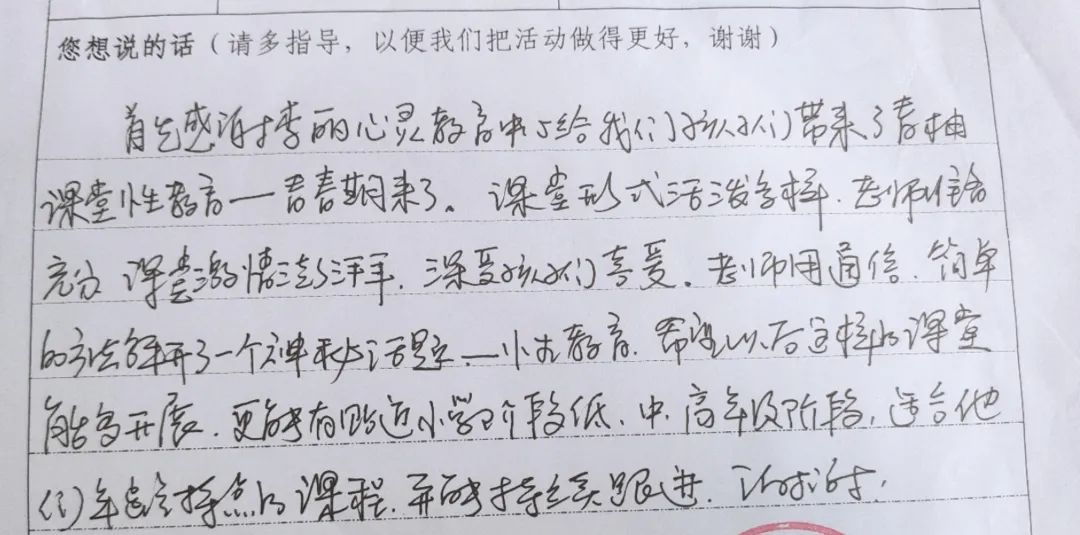 您想说的话（请多指导，以便我们把活动做得更好，谢谢）
首先感谢李丽心灵教育中心给我们孩子们带来了青柚
课堂性教育—青春期来了。课堂形式活泼多样，老师准备
充分，课堂激情澎湃，深受孩子们喜爱。老师用通俗、简单
的方法解开了一个神秘话题—性教育。希望以后这样的课堂
能多开展，更能有贴近小学阶段低、中、高年级阶段，适合他
们年龄特点的课程，并能持续跟进，谢谢！